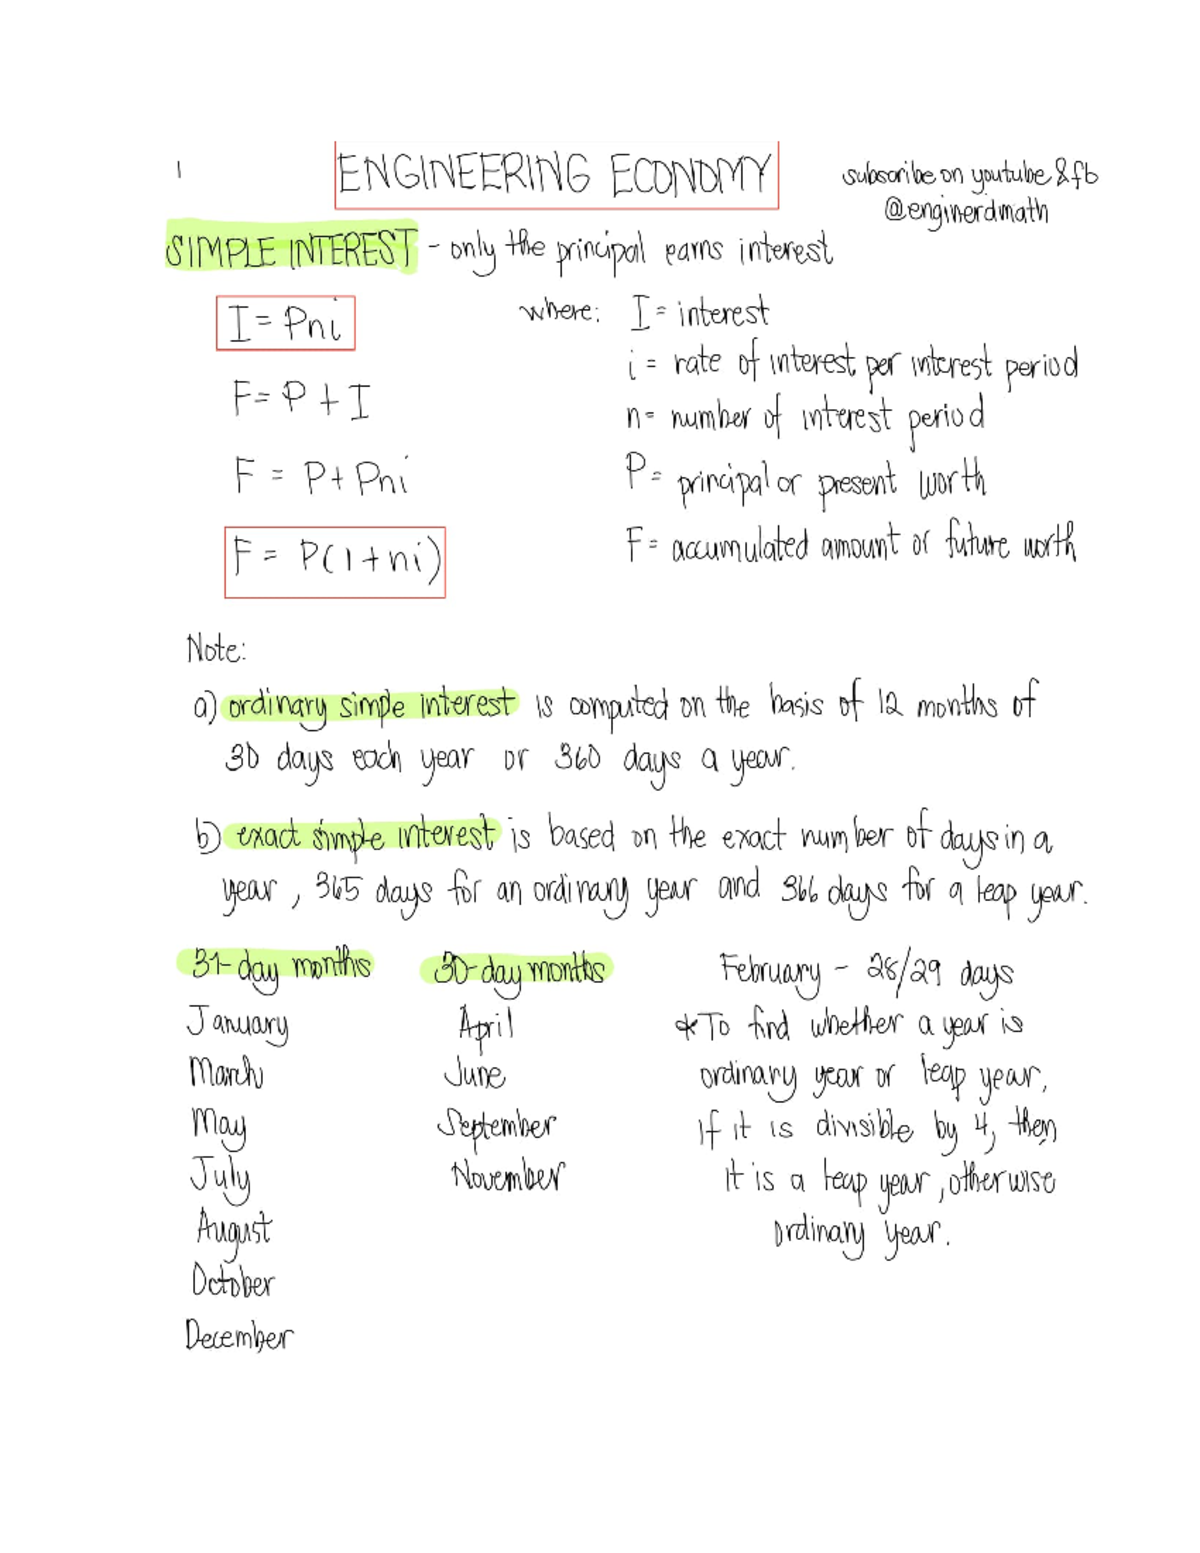 1
ENGINEERING ECONOMY
subscribe on youtube & fb
@enginerdmath
SIMPLE INTEREST - only the principal earns interest
I = Pni
F = P + I
F = P + Pni
F = P(1+ni)
where: I = interest
i = rate of interest per interest period
n = number of interest period
P = principal or present worth
F = accumulated amount or future worth
Note:
a) ordinary simple interest is computed on the basis of 12 months of
30 days each year or 360 days a year.
b) exact simple interest is based on the exact number of days in a
year, 365 days for an ordinary year and 366 days for a leap year.
31-day months
January
March
May
July
August
October
December
30-day months
April
June
September
November
February - 28/29 days
*To find whether a year is
ordinary year or leap year,
if it is divisible by 4, then
it is a leap year, otherwise
ordinary year.